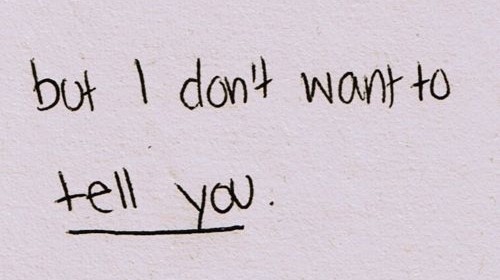 but I don't want to
tell you.